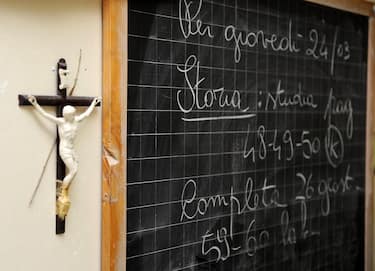 Per giovedì 24/03
Storia: studia pag
48-49-50 (K)
Completa 76 quest.
59-60 la